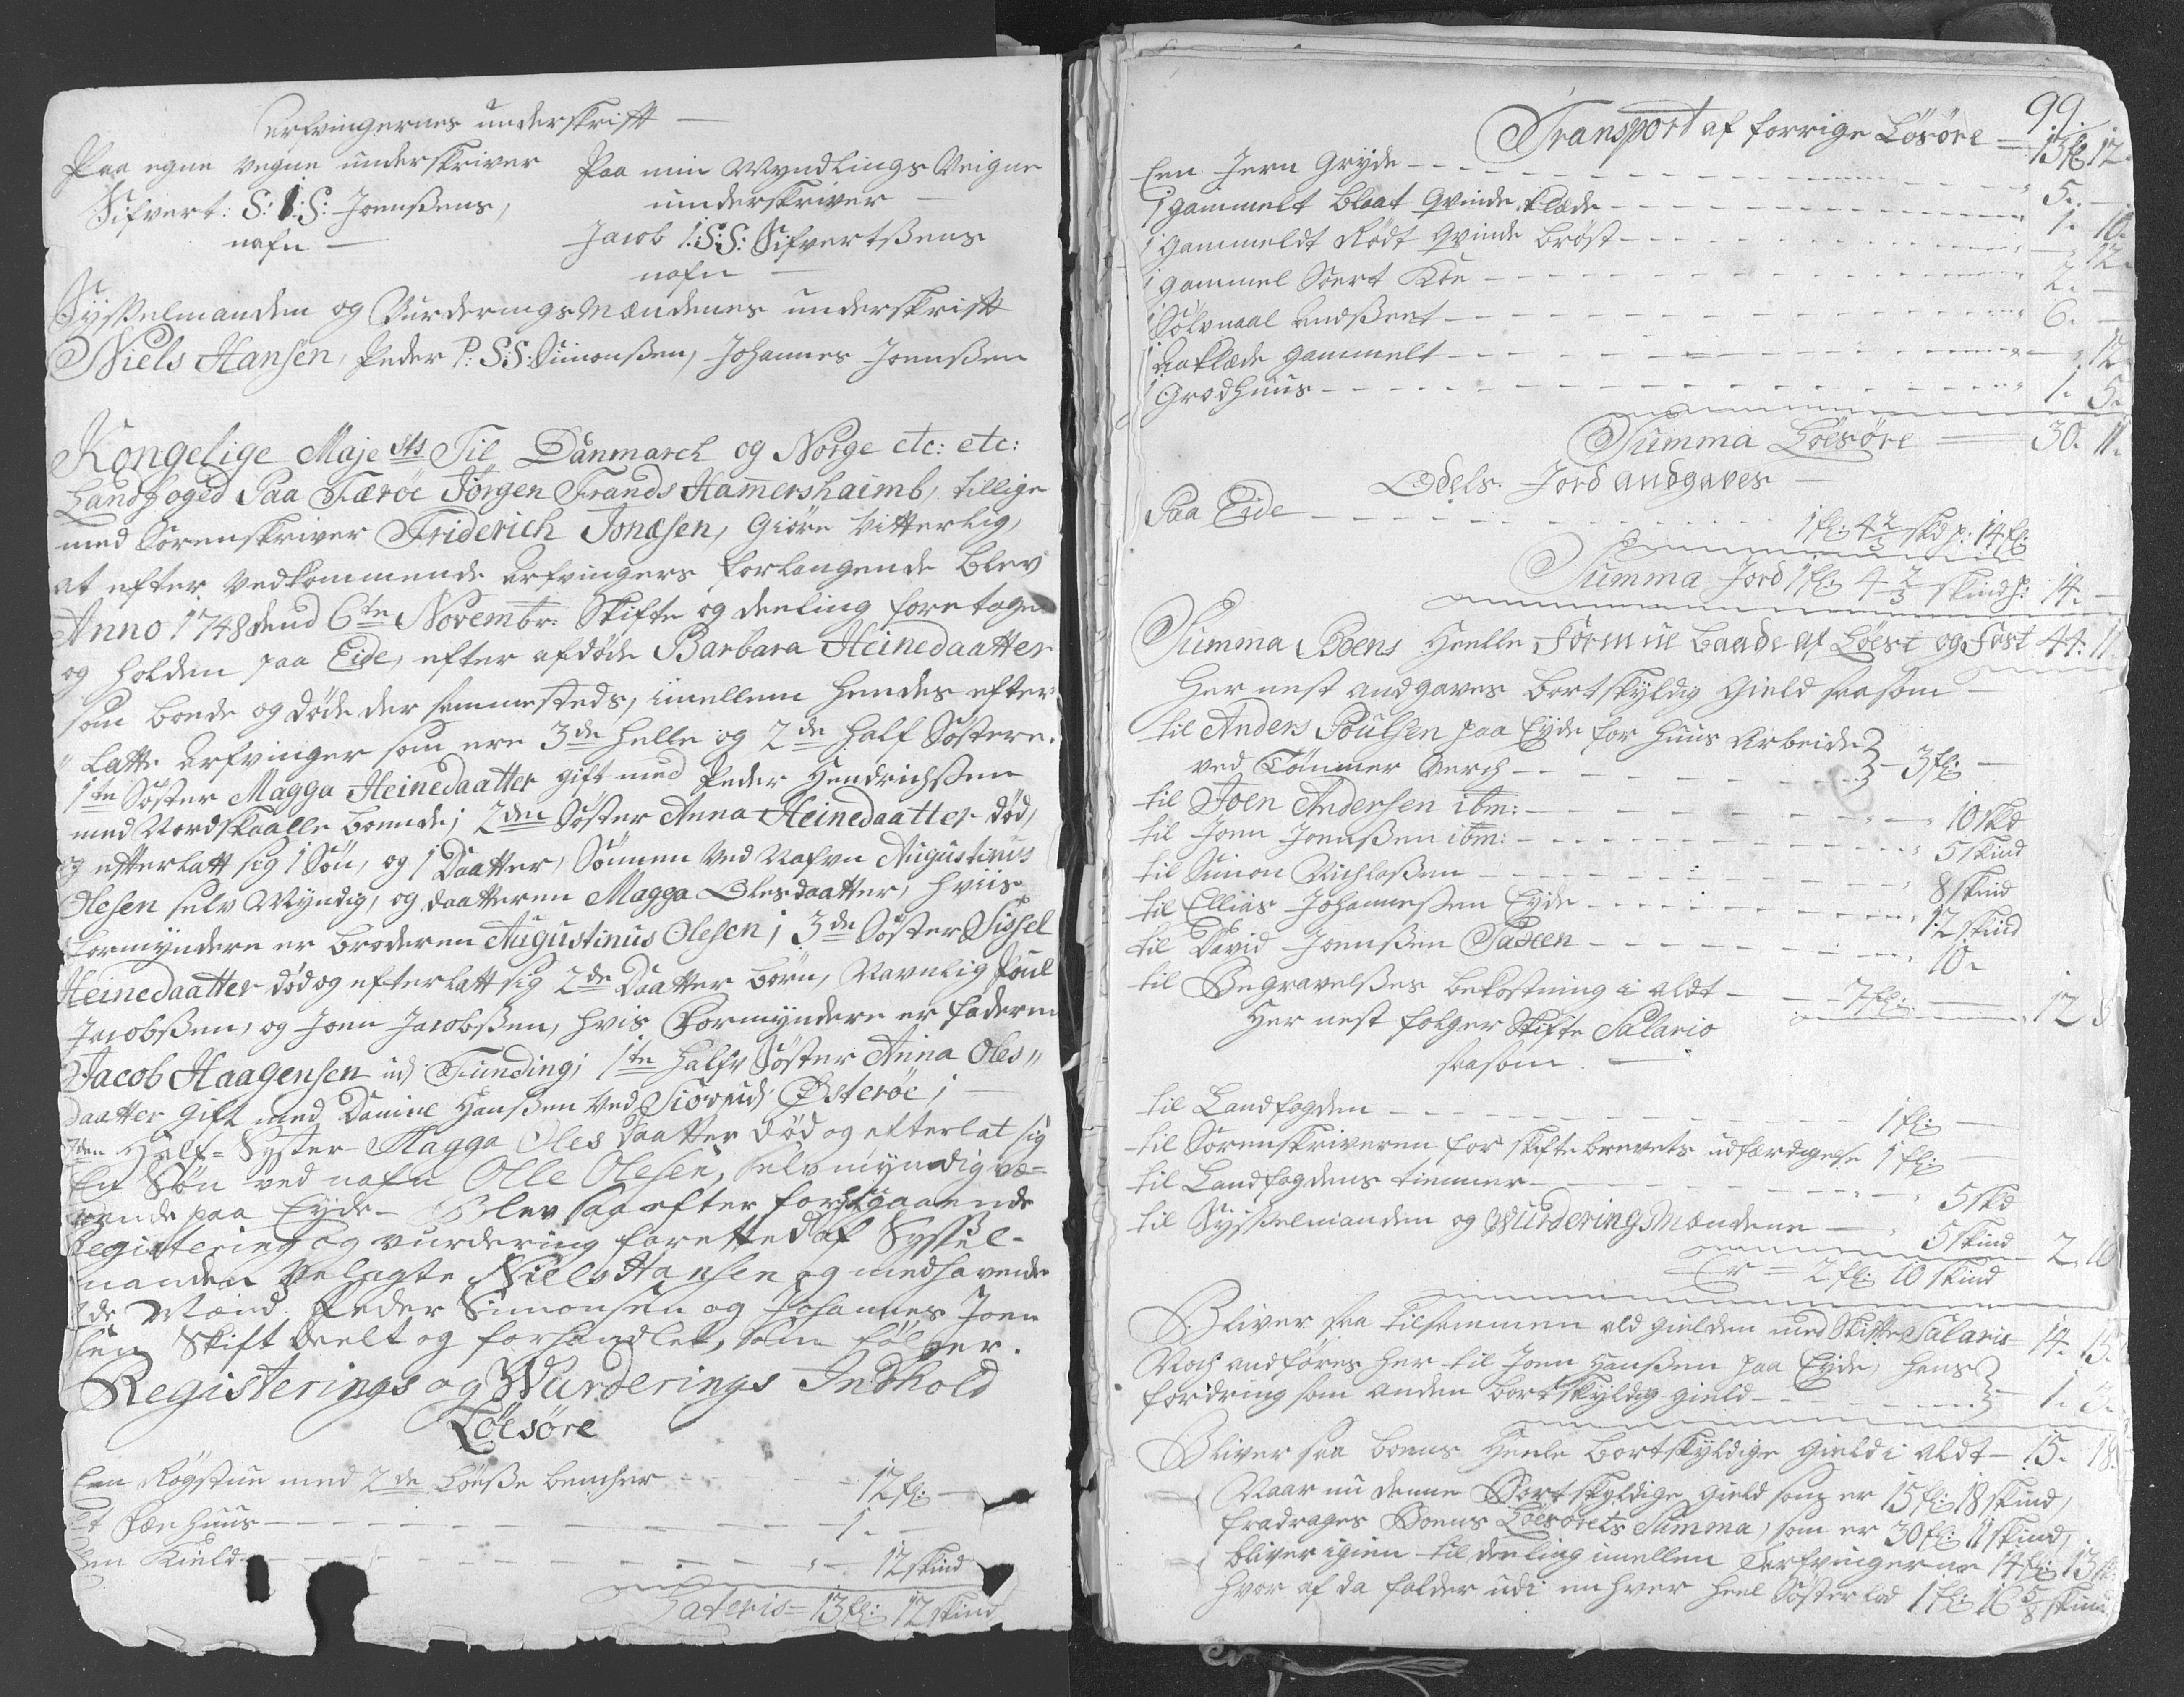 Erfvingernes underskrift —
Paa egne vegne underskriver
Sifvert: S: I: S: Joensßens,
nafn —
Paa min Myndlings Veigne
underskriver —
Jacob I: S: S: Sifvertsßens
nafn —
Sysßelmanden og Vurderings Mændenes underskrift
Niels Hansen, Peder P: S: S: Simonsßen, Johannes Joensßen
Kongelige Majests Til Danmarck og Norge etc: etc:
Landfoged Paa Færöe Jörgen Frands Hamershaimb, tillige
med Sorenskriver Friderich Jonæsen, Giöre Vitterlig,
at efter Vedkommende Erfvingers forlangende blev
Anno 1748 dend 6te Novembr: Skifte og deeling foretagen
og holden paa Eide, efter afdöde Barbara Heinedaatter
som boede og döde der sammesteds, imellem hendes efter
" latte Erfvinger som ere 3de helle og 2de half Söstere.
1te Söster Magga Heinedaatter gift med Peder Hendrichsßen
med Nordskaalle boende; 2den Söster Anna Heinedaatter död,
og efterlatt sig 1 Sön, og 1 Daatter, Sönnen Ved Nafvn Augustinus
Olesen selv Myndig, og daatteren Magga Olesdaatter, hviis
formyndere er broderen Augustinus Olesen; 3de Söster Sissel
Heinedaatter död og efterlatt sig 2de Daatter börn, Navnlig Poul
Jacobsßen, og Joen Jacobsßen, hvis Formyndere er faderen
Jacob Haagensen udj Funding; 1te halfv Söster Anna Oles"
daatter gift med Daniel Hansßen Ved Siovnd Österöe; —
2den Half-Syster Magga Olesdaatter död og efterlat sig
En Sön ved nafn Olle Olesen, selv myndig væ=
rende paa Eyde. — Blev saa efter forregaaende
Registering og vurdering forettet af Syssel-
manden Velagte Niels Hansen og medhavende
2de Mænd Peder Simonsen og Johannes Joen
sen Skift deelt og forhandlet, som fölger.
Registerings og Wurderings Indhold
Löesöre
Een Rögstue med 2de Löesße bencher — 12 fl: —
Et Fæe huus — 1. —
Een Kield — " — 12 skind
Lateris = 13 fl: 12 skind
99.
Transport af forrige Lösöre — 13 fl 12.
Een Jern Gryde — 5. —
1 gammelt blaat Qvinde Klæde — 1. 10.
1 gammeldt Rödt Qvinde bröst — — 12.
1 gammel Sort Koe — 2. —
1 Sölvnaal — 6. —
1 gammelt — " 12
1 Grodhuus — 1. 5.
Summa Löesöre — 30. 11.
Odels Jord andgaves —
Paa Eide — 1 fl: 4 2/3 skd p: 14 fl:
Summa Jord 1 fl: 4 2/3 skind p: 14. —
Summa Boens Heelle Formue baade af Löest og Fast 44: 11
Her nest andgaves bortskyldig Gield saasom —
til Anders Poulsen paa Eyde for huus Arbeide
ved Tömmer Verch — 3 fl: —
til Joen Andersen ibm: — " 10 skd
til Joen Joensßen ibm: — " 5 skind
til Simon Nichlasßen — " 8 skind
til Ellias Johannesßen Eyde — " 12 skind
til David Joensßen — " 10.
til Begravelsßes bekostning i aldt — 7 fl: — 12 5
Her nest folger Skifte Salario
saasom. —
til Landfogden — 1 fl: —
til Sorenskriveren for skiftebrevets udfærdigelse 1 fl: —
til Landfogdens tienner — " 5 skd
til Sysßelmanden og Wurderings Mændene — " 5 skind
Er = 2 fl: 10 skind — 2. 10
Bliver saa tilsammen ald gielden med Skifte Salario 14. 15.
Noch andföres her til Joen Hansßen paa Eyde, hans
fordring som anden bortskyldig gield — 1. 3.
Bliver saa boens Heele bortskyldige Gield i aldt — 15. 18.
Naar nu denne Bortskyldige gield som er 15 fl: 18 skind,
fradrages Boens Löesörets Summa, som er 30 fl: 11 skind,
bliver igien til deeling imellem Erfvingerne 14 fl: 13 sk:
hvor af da falder udi en hver heel Söster lod 1 fl: 16 5/8 skind